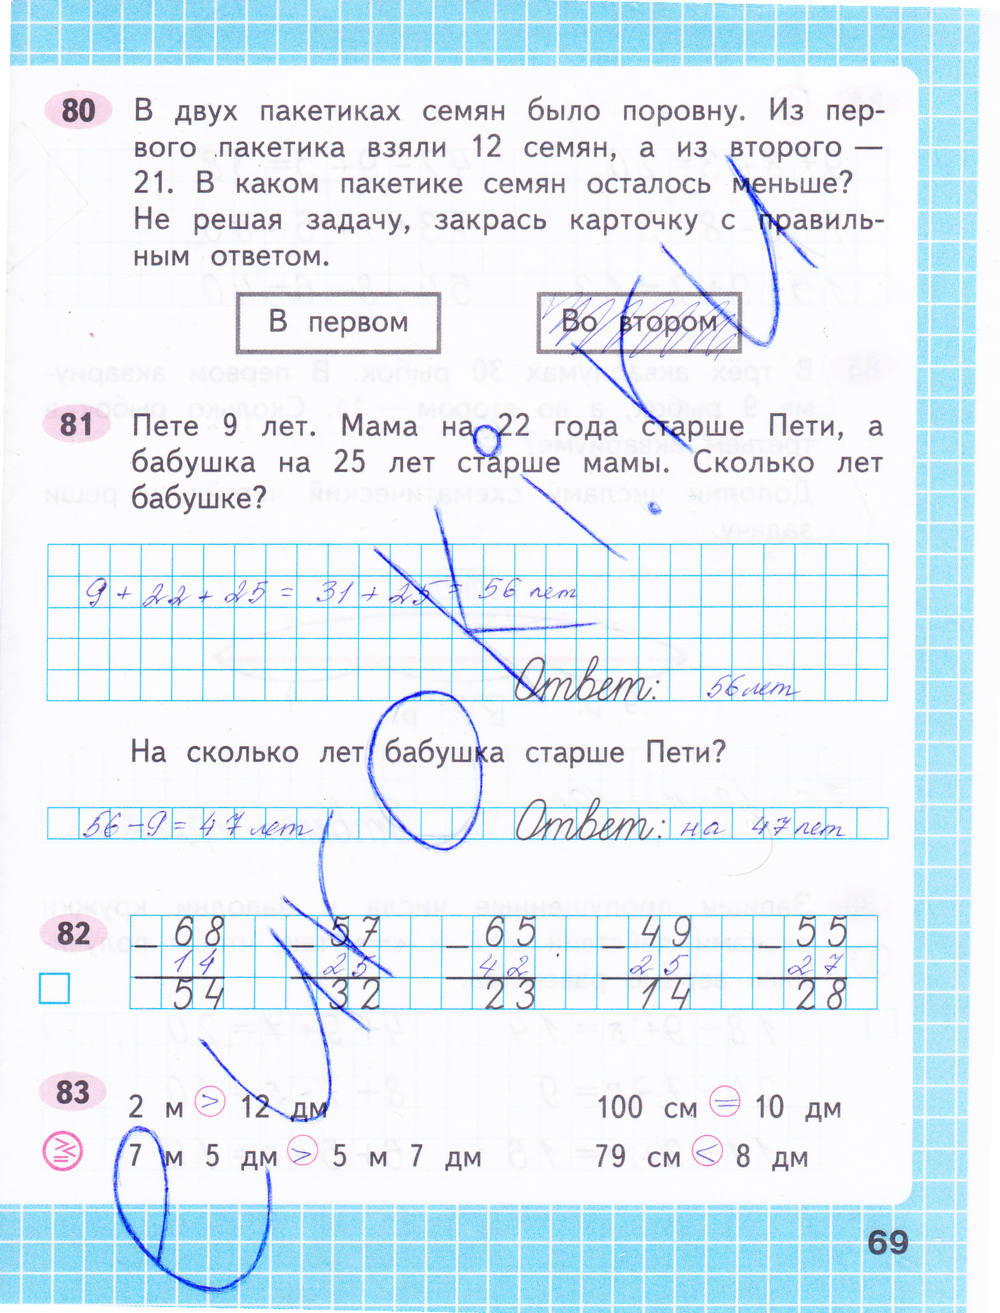 80 В двух пакетиках семян было поровну. Из пер-
вого пакетика взяли 12 семян, а из второго —
21. В каком пакетике семян осталось меньше?
Не решая задачу, закрась карточку с правиль-
ным ответом.
В первом Во втором
81 Пете 9 лет. Мама на 22 года старше Пети, а
бабушка на 25 лет старше мамы. Сколько лет
бабушке?
9 + 22 + 25 = 31 + 25 = 56 лет
Ответ: 56 лет
На сколько лет бабушка старше Пети?
56 - 9 = 47 лет Ответ: на 47 лет
82 - 68 - 57 - 65 - 49 - 55
14 25 42 25 27
54 32 23 14 28
83 2 м > 12 дм 100 см = 10 дм
7 м 5 дм > 5 м 7 дм 79 см < 8 дм
69